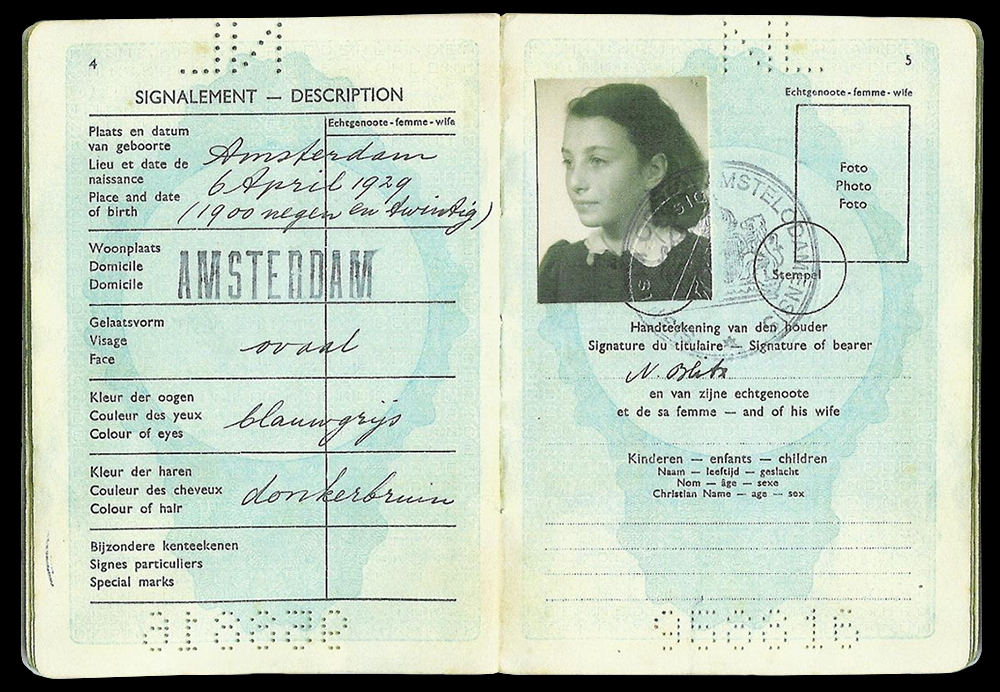 4
SIGNALEMENT — DESCRIPTION
Echtgenoote - femme - wife
Plaats en datum
van geboorte
Lieu et date de
naissance
Place and date
of birth
Amsterdam
6 April 1929
(1900 negen en twintig)
Woonplaats
Domicile
Domicile
AMSTERDAM
Gelaatsvorm
Visage
Face
ovaal
Kleur der oogen
Couleur des yeux
Colour of eyes
blauwgrijs
Kleur der haren
Couleur des cheveux
Colour of hair
donkerbruin
Bijzondere kenteekenen
Signes particuliers
Special marks
NL
5
Echtgenoote - femme - wife
Foto
Photo
Foto
AMSTELODAMENSIS
Stempel
Handteekening van den houder
Signature du titulaire — Signature of bearer
N. Blitz
en van zijne echtgenoote
et de sa femme — and of his wife
Kinderen — enfants — children
Naam — leeftijd — geslacht
Nom — âge — sexe
Christian Name — age — sex